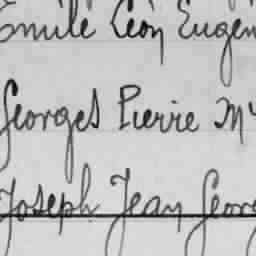 Emile Léon Eugen
Georges Pierre M
Joseph Jean Georg